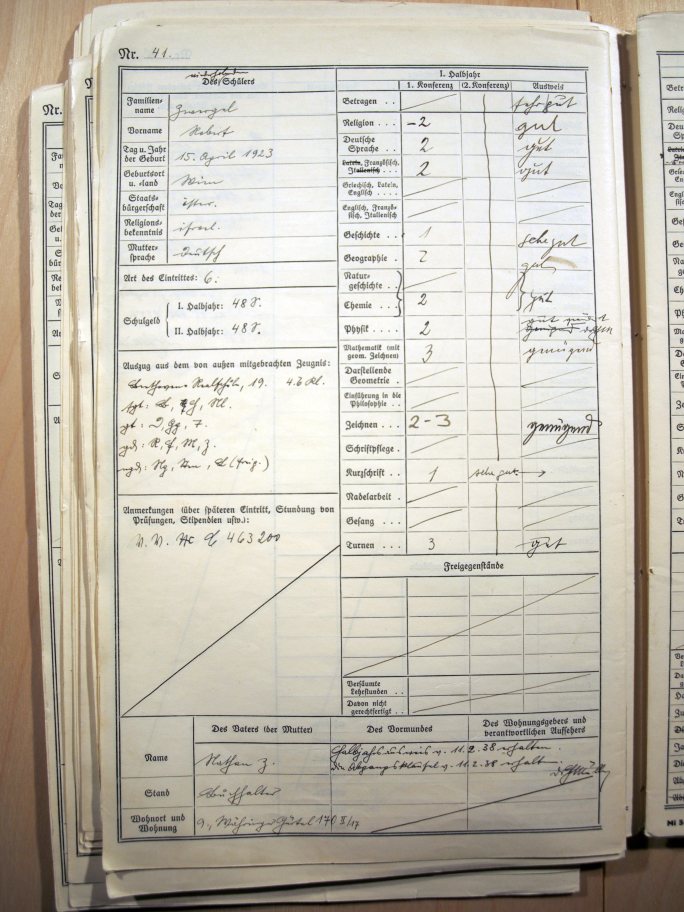 Nr. 41.
Des Schülers
I. Halbjahr
1. Konferenz (2. Konferenz) Ausweis
Familien-
name
Vorname Robert
Tag u. Jahr
der Geburt 15. April 1923
Geburtsort
u. -land Wien
Staats-
bürgerschaft österr.
Religions-
bekenntnis israel.
Mutter-
sprache deutsch
Art des Eintrittes: 6.
Schulgeld
I. Halbjahr: 48 S.
II. Halbjahr: 48 S.
Auszug aus dem von außen mitgebrachten Zeugnis:
Realschule, 19. 4. b Kl.
Anmerkungen (über späteren Eintritt, Stundung von
Prüfungen, Stipendien usw.):
463200
Betragen . . sehr gut
Religion . . . -2 gut
Deutsche
Sprache . . 2 gut
Latein, Französisch,
Italienisch . . 2 gut
Griechisch, Latein,
Englisch . . . .
Englisch, Französ-
sisch, Italienisch
Geschichte . . 1 sehr gut
Geographie . 2 gut
Natur-
geschichte . .
Chemie . . . 2 gut
Physik . . . . 2 gut
genügend
Mathematik (mit
geom. Zeichnen) 3 genügend
Darstellende
Geometrie .
Einführung in die
Philosophie . .
Zeichnen . . . 2-3 genügend
Schriftpflege .
Kurzschrift . 1 sehr gut
Nadelarbeit .
Gesang . . .
Turnen . . . 3 gut
Freigegenstände
Versäumte
Lehrstunden . .
Davon nicht
gerechtfertigt . .
Des Vaters (der Mutter) Des Vormundes Des Wohnungsgebers und
verantwortlichen Aufsehers
Name Nathan Z.
Halbjahrsausweis v. 11.2.38 erhalten.
Die Abgangsklausel v. 11.2.38 erhalten
Stand Buchhalter
Wohnort und
Wohnung 9., Währinger Gürtel 170 II/17